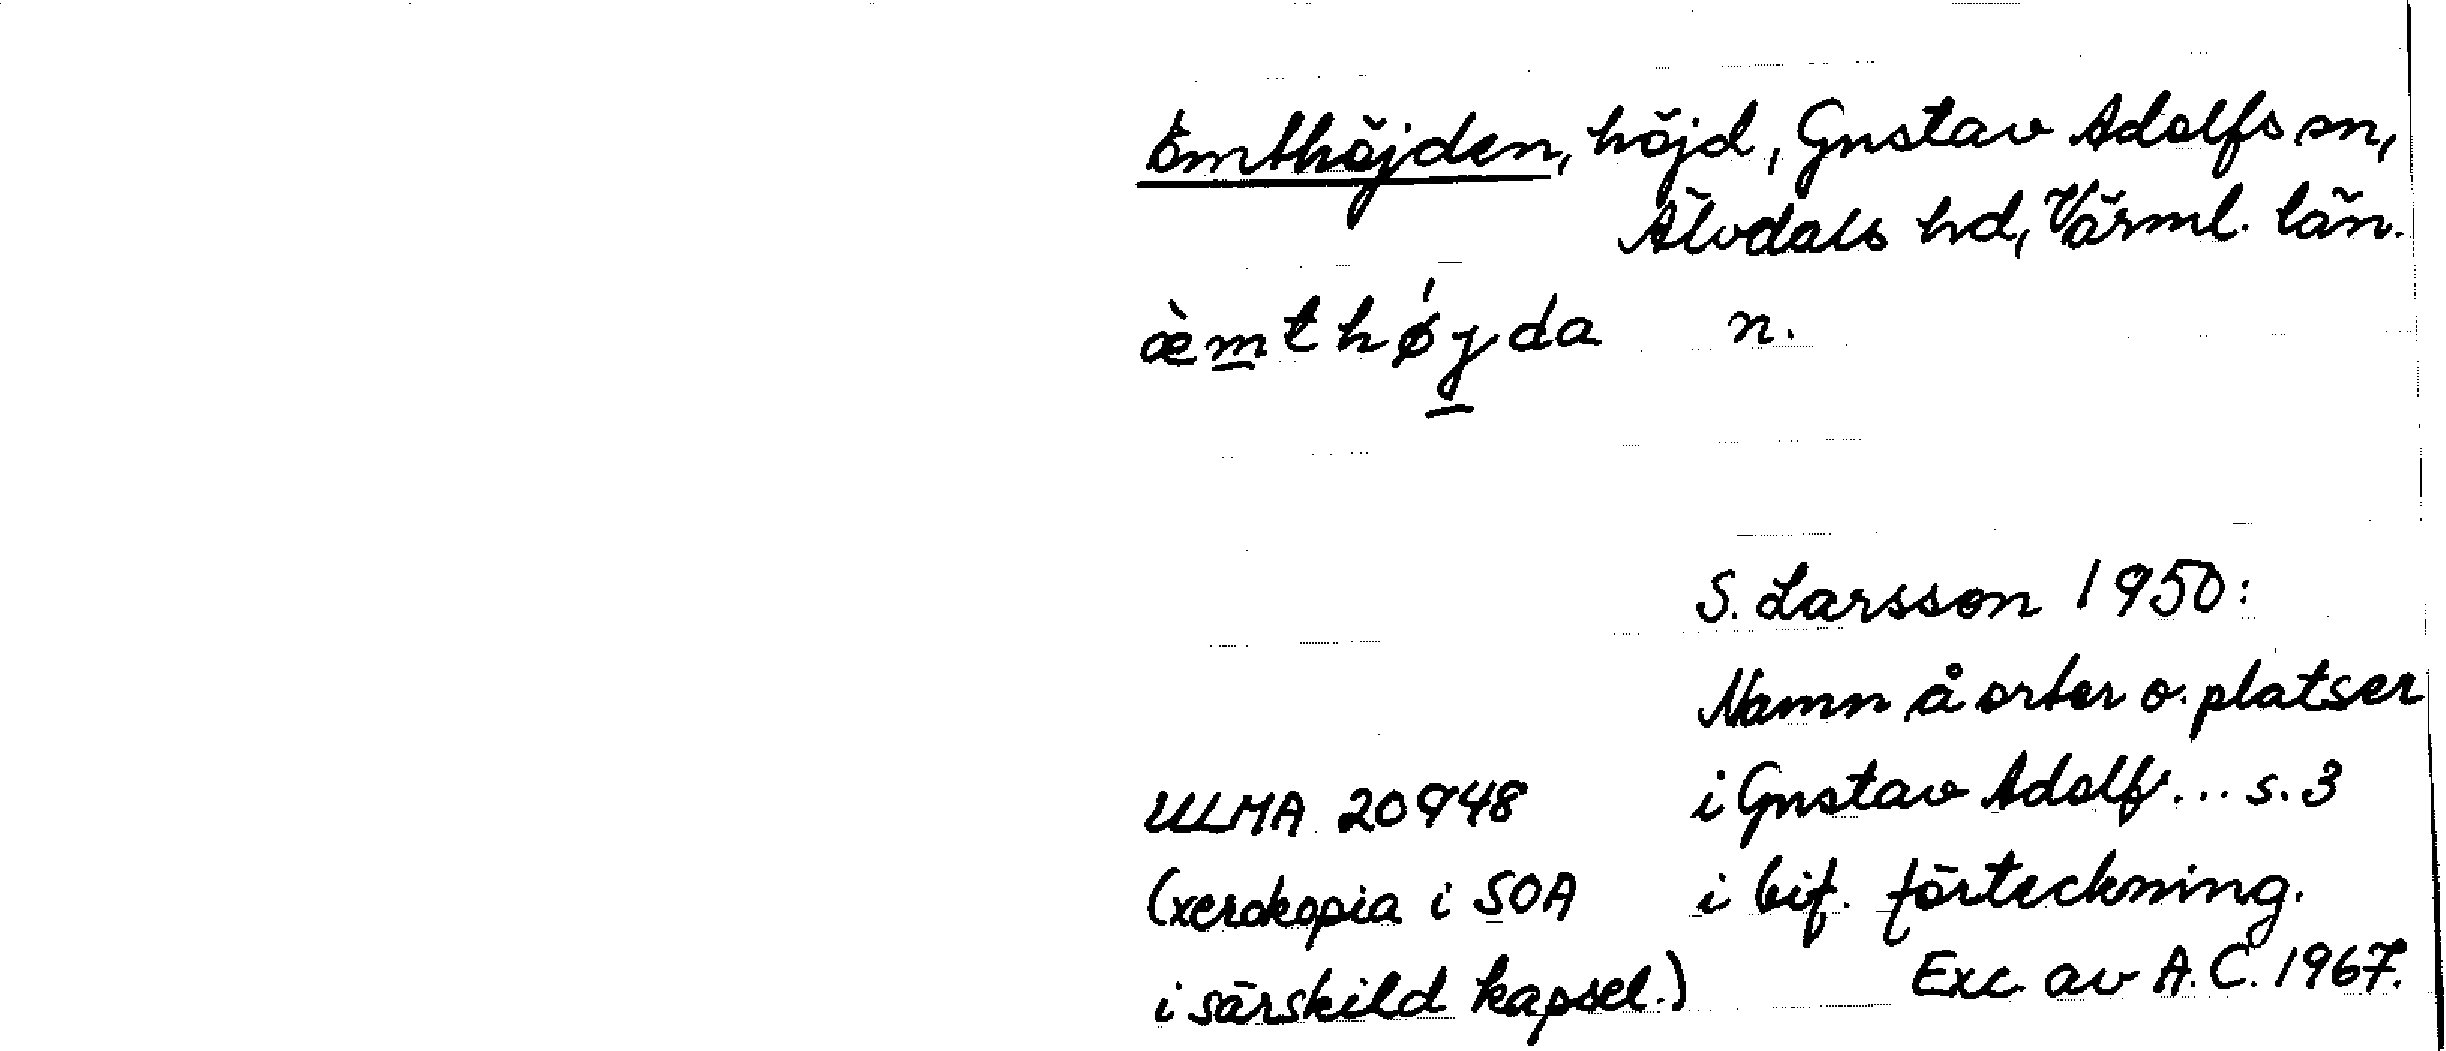 Ämthöjden, höjd, Gustav Adolfs sn,
Älvdals hd, Värml. län.
æ̀m̲thǿy̲da n.
S. Larsson 1950:
Namn å orter o. platser
ULMA 20948 i Gustav Adolf... s. 3
(xerokopia i SOA i bif. förteckning.
i särskild kapsel.) Exc. av A.C. 1967.